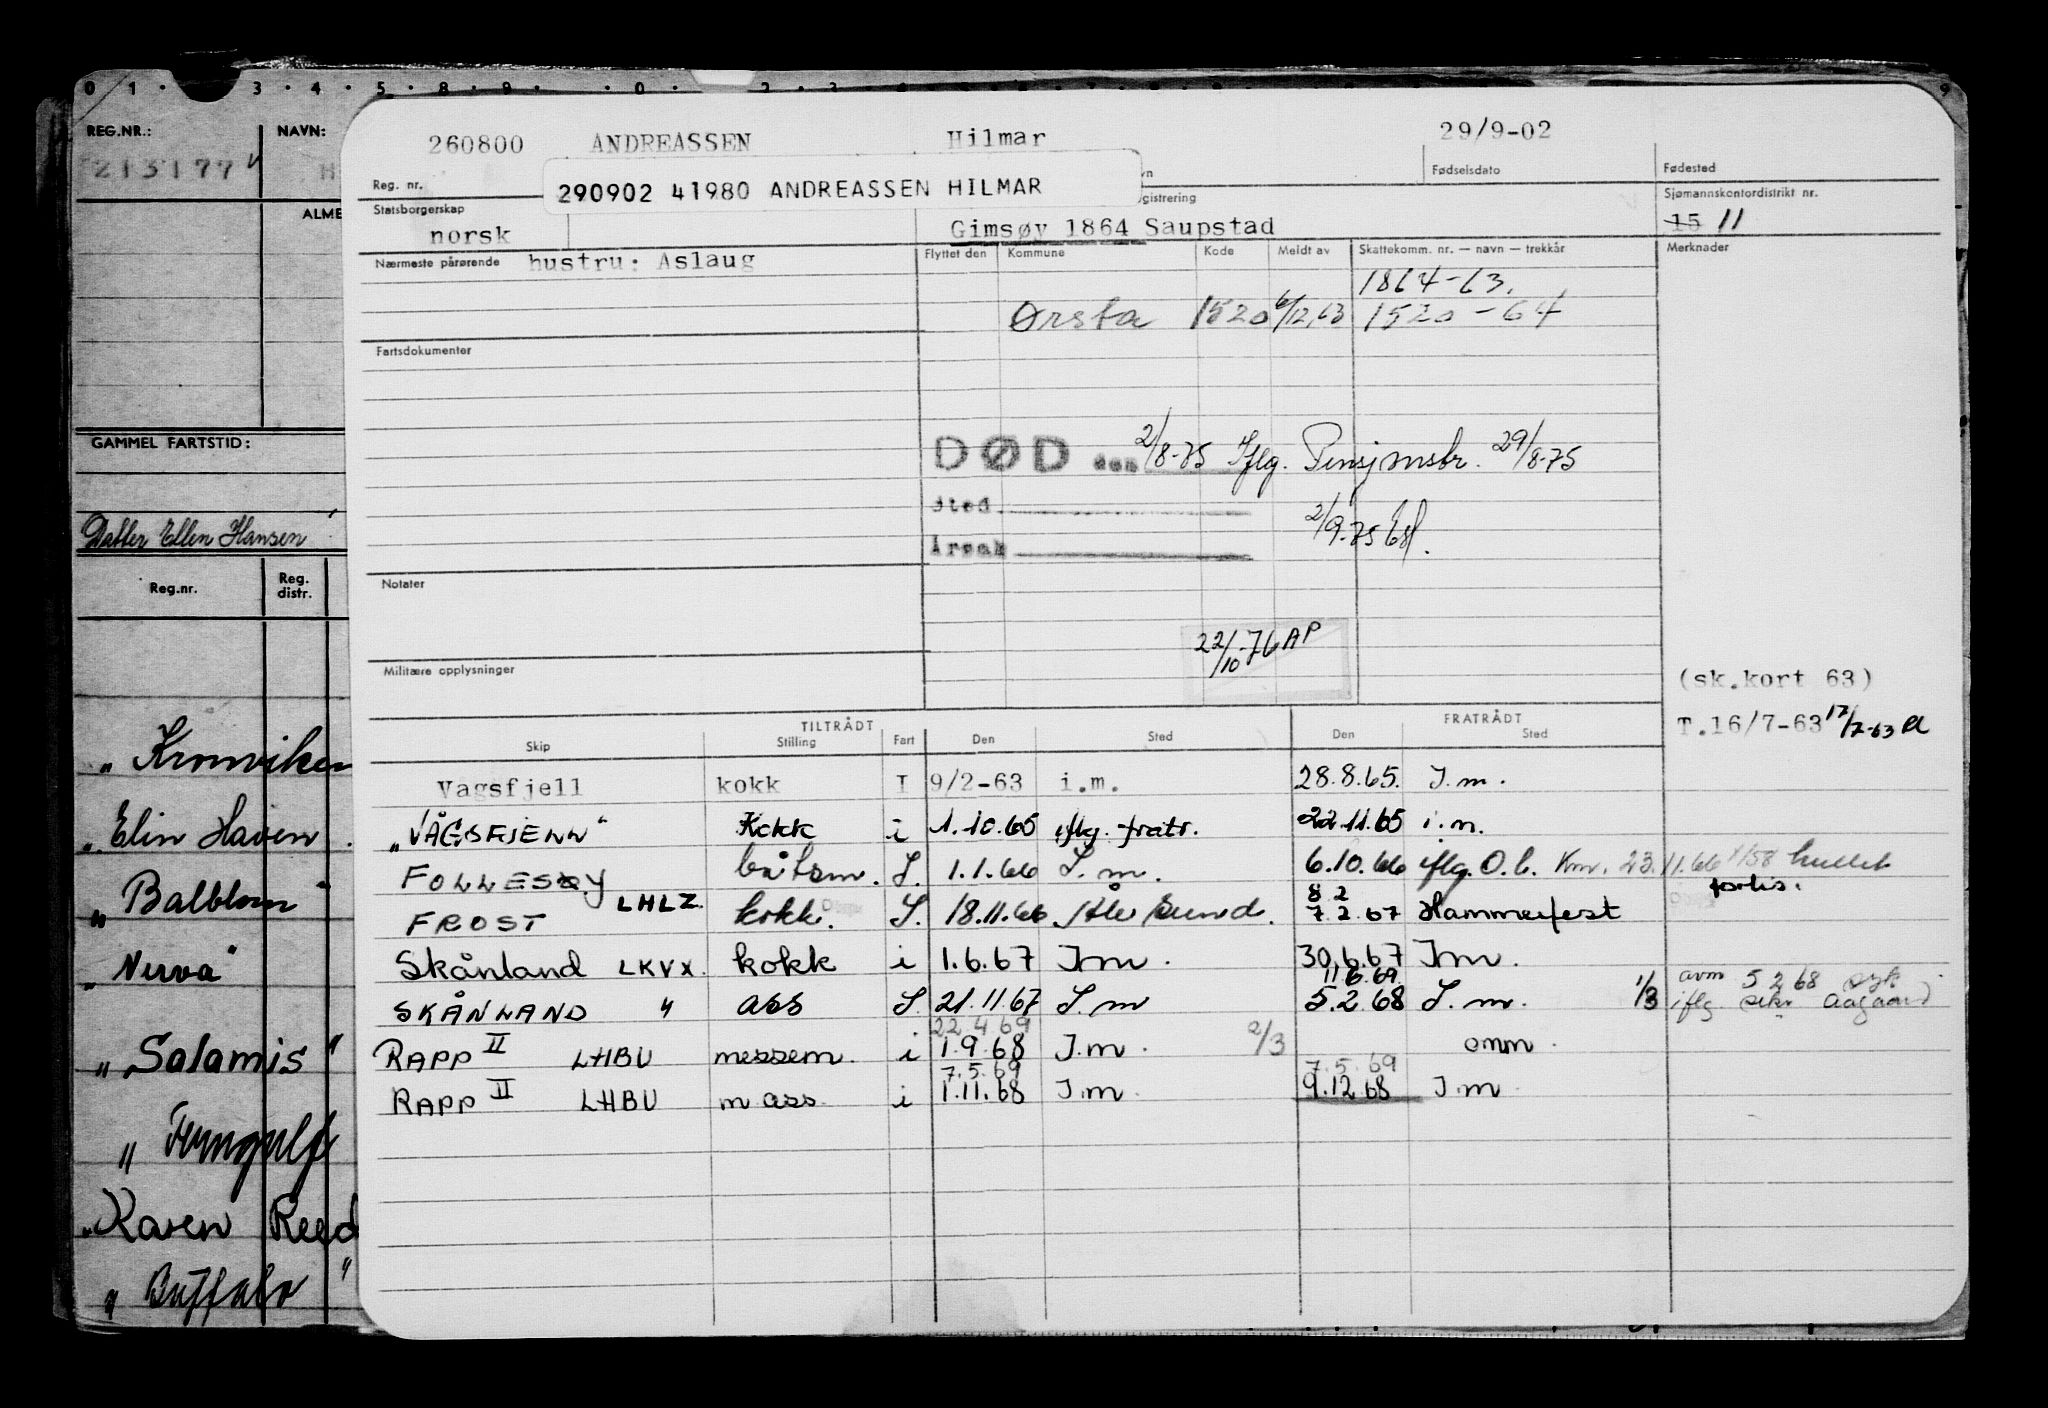 0 1 · 3 · 4 · 5 · 8 · 9 · 0 · 2 · 3 9
REG.NR.: NAVN:
213177 H
ALME
GAMMEL FARTSTID:
Datter Ellen Hansen
Reg.nr. Reg. distr.
„ Kronviken
„ Elin Haven
„ Balblom "
„ Nerva "
„ Salamis "
„ Ferngulf
„ Karen Reed
„ Buffalo "
260800 ANDREASSEN Hilmar 29/9-02
Reg. nr. Fødselsdato Fødested
290902 41980 ANDREASSEN HILMAR
Statsborgerskap gistrering Sjømannskontordistrikt nr.
norsk Gimsøy 1864 Saupstad 15 11
Nærmeste pårørende hustru: Aslaug Flyttet den Kommune Kode Meldt av Skattekomm. nr. — navn — trekkår Merknader
1864-63.
Ørsta 1520 6/12,63 1520-64
Fartsdokumenter
DØD den 2/8-75 Iflg. Pensjonsbr. 29/8-75
Sted
2/9-75
Årsak
Notater
22/10-76 AP
Militære opplysninger
(sk.kort 63)
T.16/7-63 17/7-63
TILTRÅDT FRATRÅDT
Skip Stilling Fart Den Sted Den Sted
Vagsfjell kokk I 9/2-63 i.m. 28.8.65. I.m.
„VÅGSFJELL" Kokk i 1.10.65 iflg. fratr. 22.11.65 i.m.
FOLLESØY båtsm. S. 1.1.66 S.m. 6.10.66 iflg. O.b. Km. 23.11.66
FROST LHLZ kokk. S. 18.11.66 Ålesund. 8 2 7.2.67 Hammerfest
Skånland LKVX. kokk i 1.6.67 I.m. 30.6.67 I.m.
SKÅNLAND " ass S. 21.11.67 S.m 11.6.69 5.2.68 S.m. 1/3 avm 5 2 68 syk iflg. Aagaard
RAPP II LHBU messem. i 22.4.69 1.9.68 I.m. 2/3 omm.
RAPP II LHBU m ass. i 7.5.69 1.11.68 I.m. 7.5.69 9.12.68 I.m